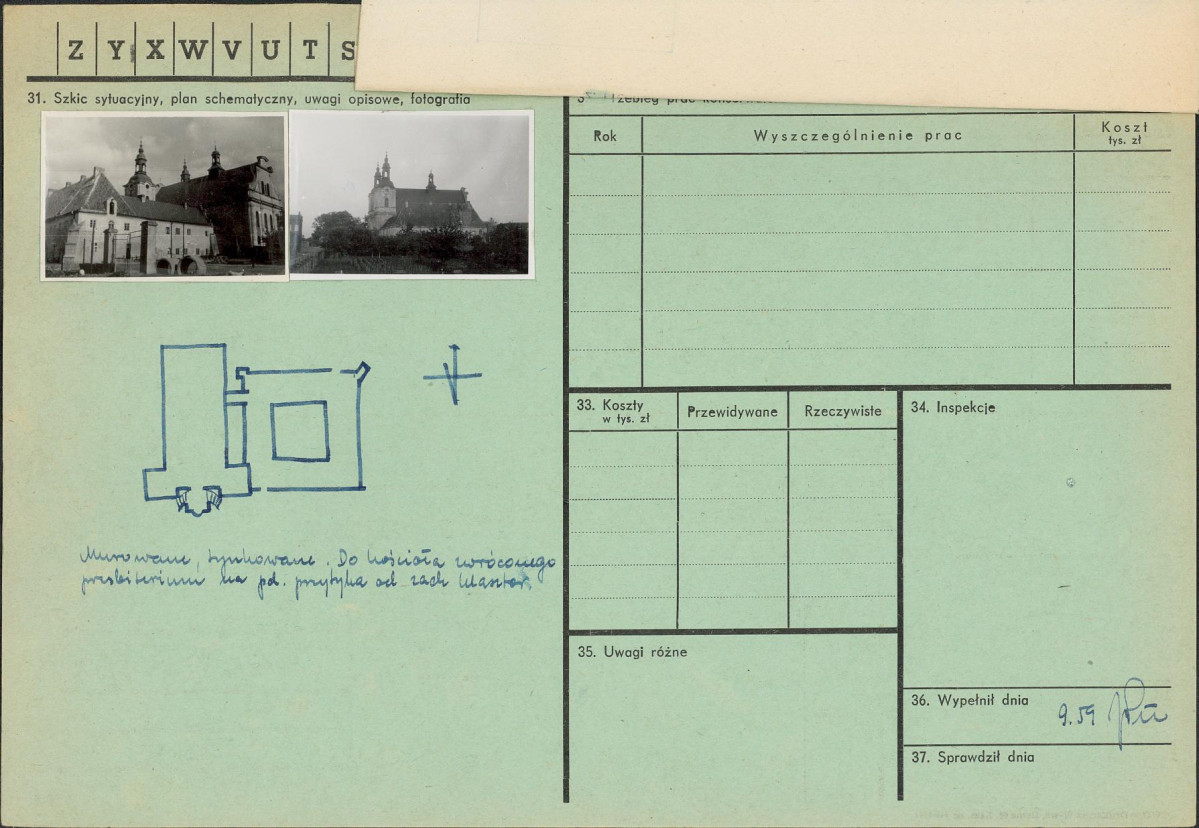 Z Y X W V U T S
31. Szkic sytuacyjny, plan schematyczny, uwagi opisowe, fotografia
Murowane, tynkowane. Do kościoła zwróconego
prezbiterium na pd. przytyka od zach klasztor.
Rok
Wyszczególnienie prac
Koszt
tys. zł
33. Koszty
w tys. zł
Przewidywane
Rzeczywiste
34. Inspekcje
35. Uwagi różne
36. Wypełnił dnia
9.59
37. Sprawdził dnia